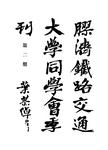 膠濟鐵路交通
大學同學會季
刊
第二期
葉恭綽